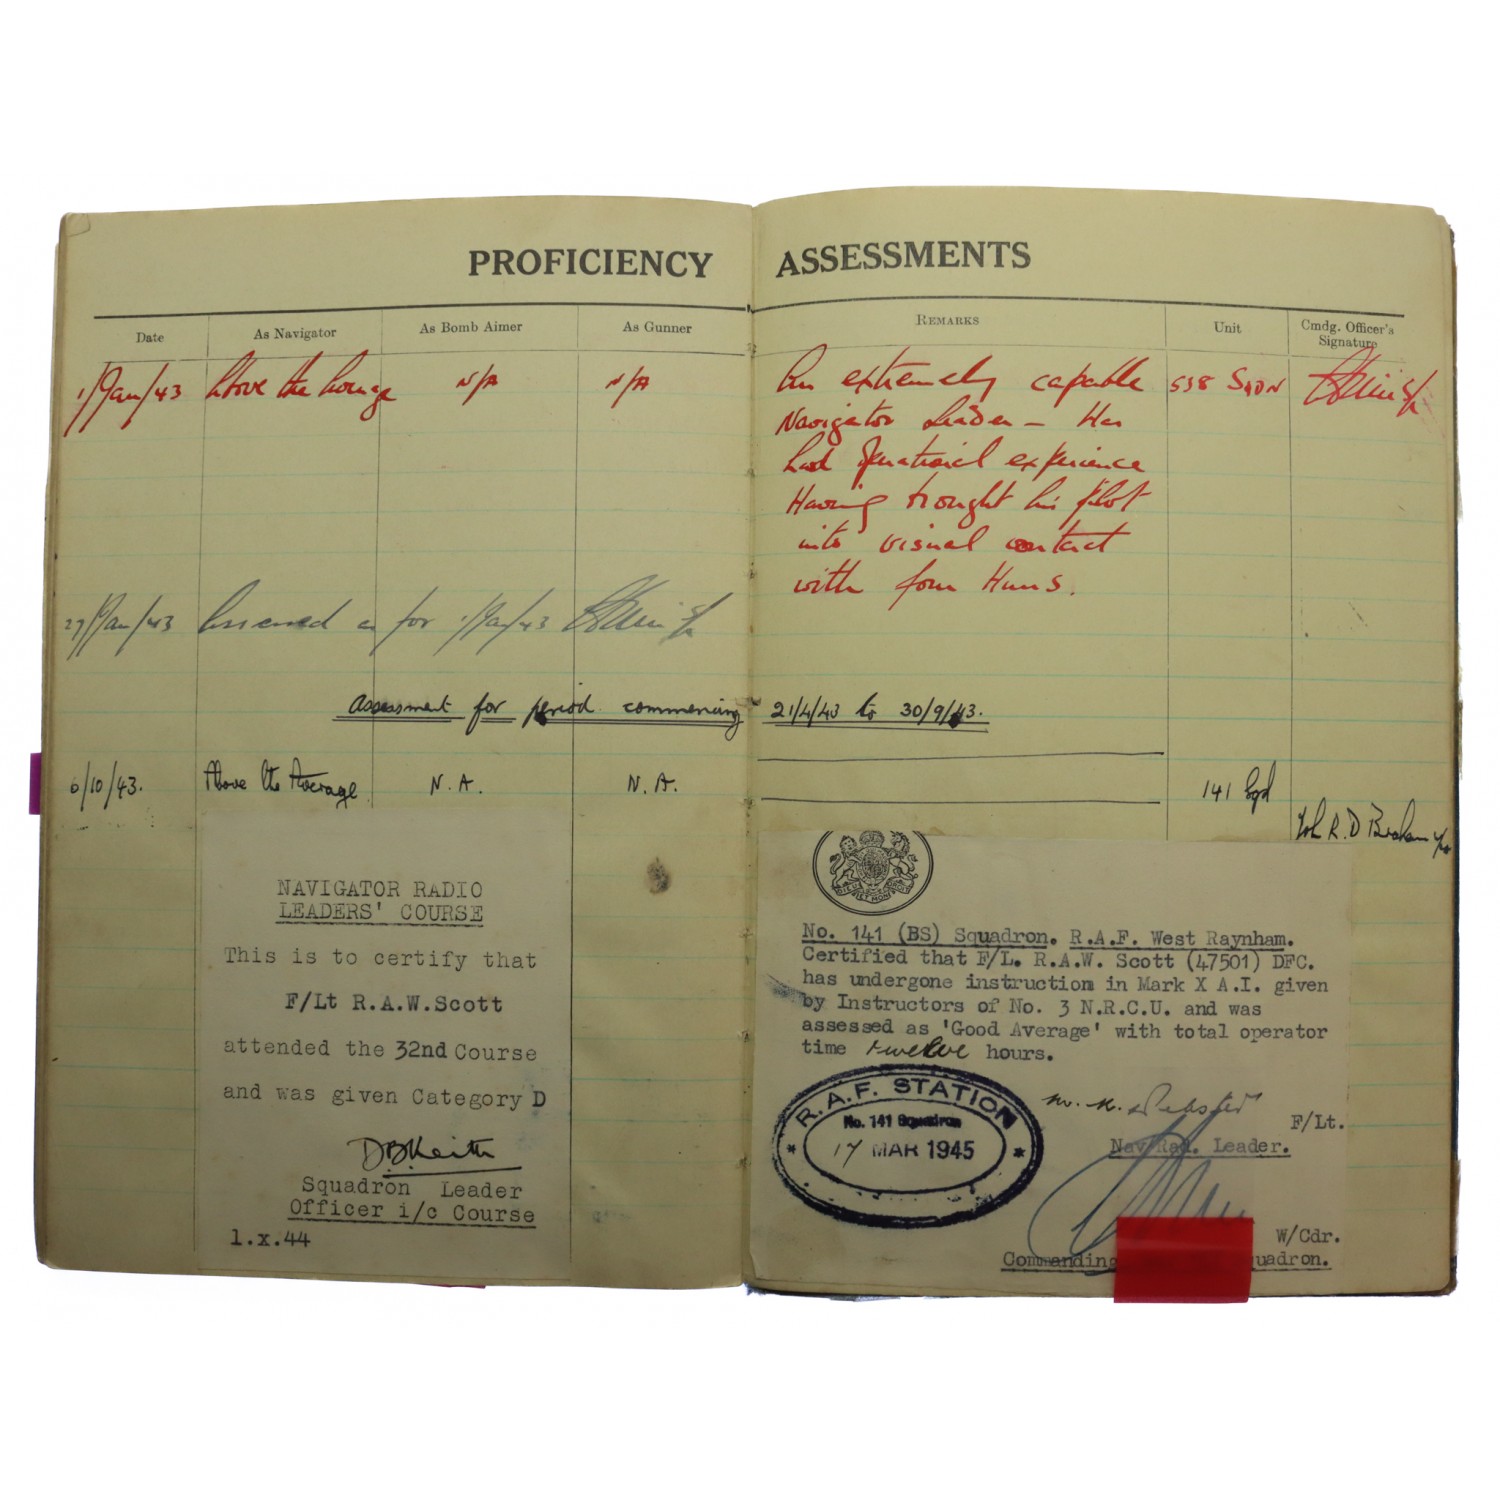 PROFICIENCY ASSESSMENTS
Date As Navigator As Bomb Aimer As Gunner REMARKS Unit Cmdg. Officer's Signature
1/Jan/43 Above the Average N/A N/A An extremely capable 538 SQDN
Navigator Leader — Has
had operational experience
Having brought his pilot
into visual contact
with four Huns.
27/Jan/43 Assessed as for 1/Jan/43
Assessment for period commencing 21/4/43 to 30/9/43.
6/10/43. Above the Average N.A. N.A. 141 Sqd
R.D
NAVIGATOR RADIO
LEADERS' COURSE
This is to certify that
F/Lt R.A.W.Scott
attended the 32nd Course
and was given Category D
Squadron Leader
Officer i/c Course
1.x.44
No. 141 (BS) Squadron. R.A.F. West Raynham.
Certified that F/L. R.A.W. Scott (47501) DFC.
has undergone instruction in Mark X A.I. given
by Instructors of No. 3 N.R.C.U. and was
assessed as 'Good Average' with total operator
time twelve hours.
R.A.F. STATION
No. 141 Squadron
17 MAR 1945
F/Lt.
Nav Rad. Leader.
W/Cdr.
Commanding